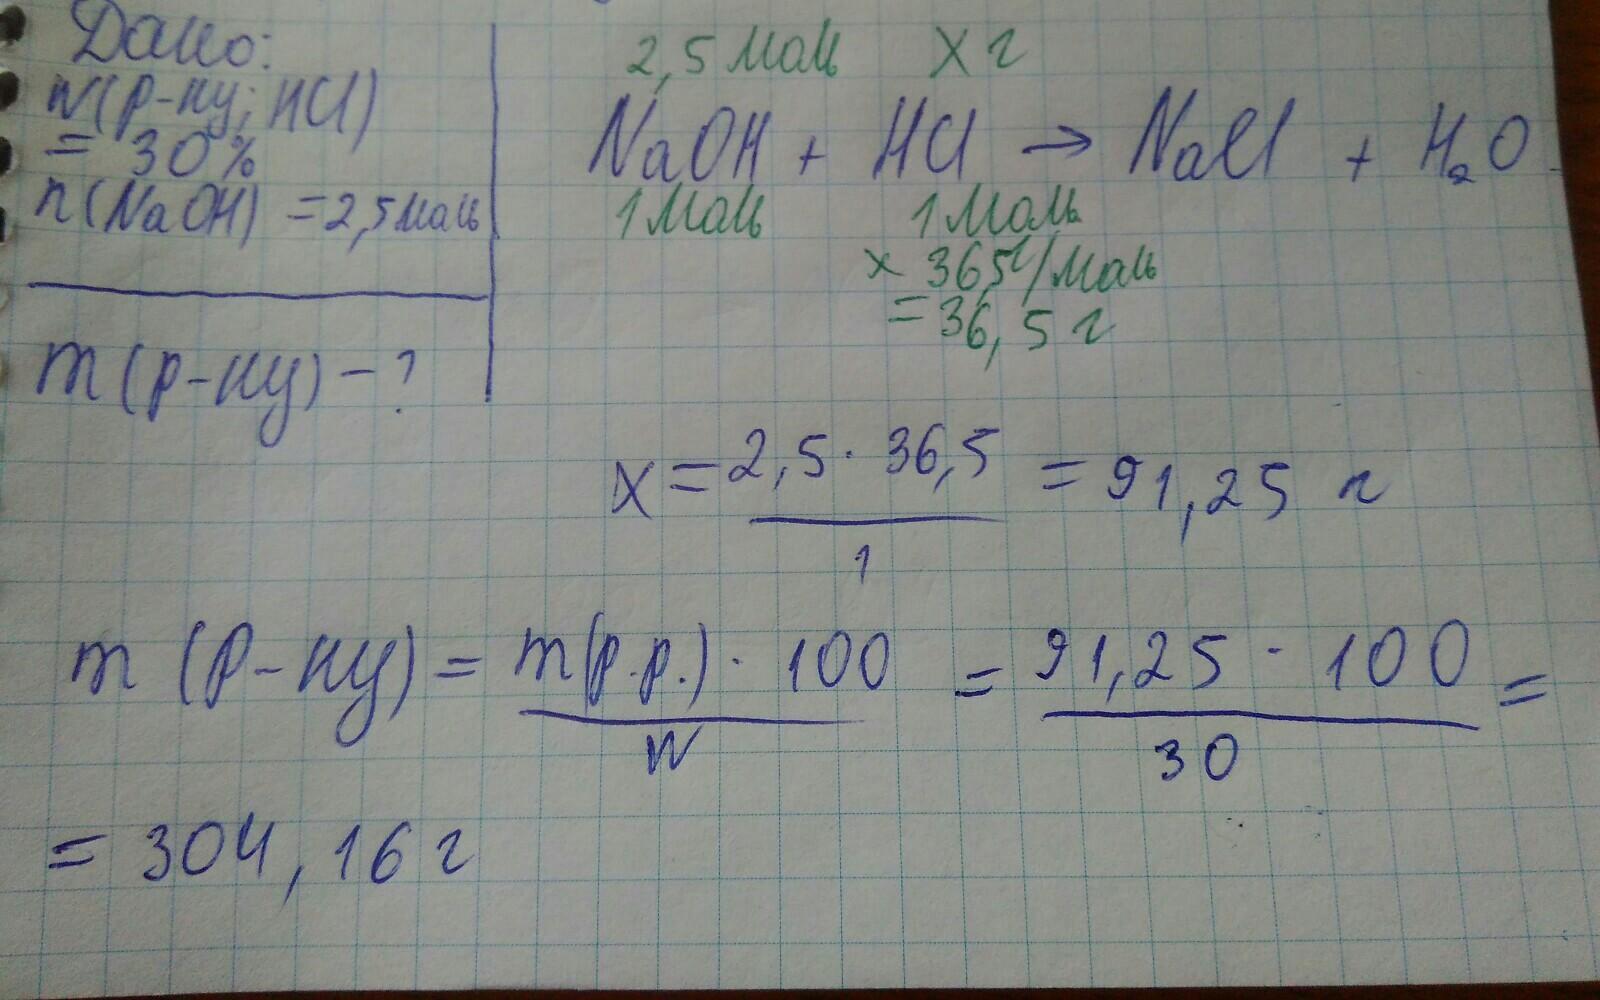 Дано:
w(р-ну; HCl)
= 30%
n(NaOH) = 2,5 моль
m(р-ну) - ?
2,5 моль X г
NaOH + HCl → NaCl + H₂O
1 моль 1 моль
× 36,5 г/моль
= 36,5 г
X = 2,5 · 36,5 / 1 = 91,25 г
m (р-ну) = m(р.р.) · 100 / w = 91,25 · 100 / 30 =
= 304,16 г